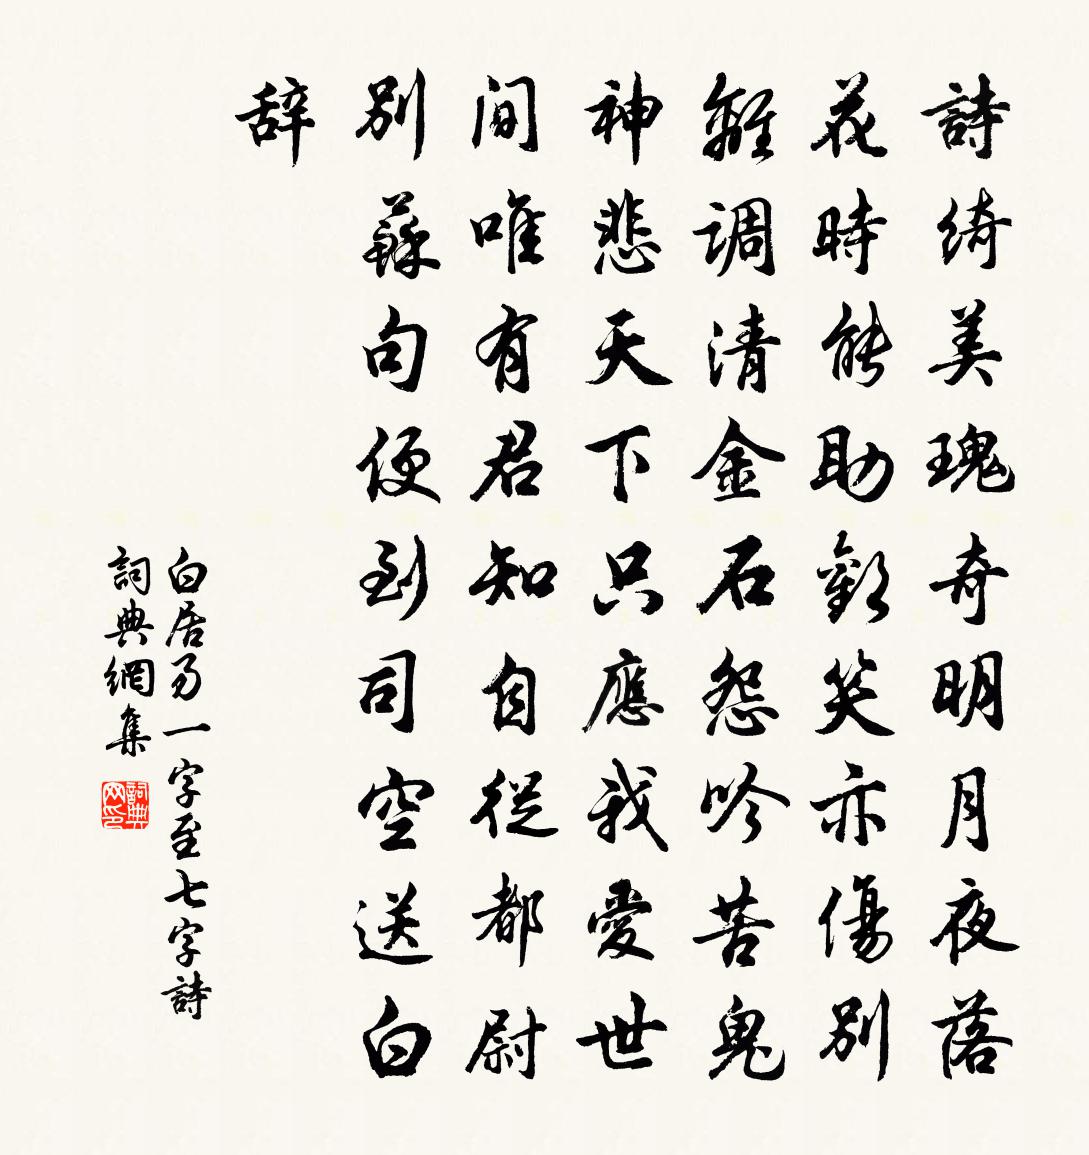 詩綺美瑰奇明月夜落
花時能助歡笑亦傷別
離調清金石怨吟苦鬼
神悲天下只應我愛世
間唯有君知自從都尉
別蘇句便到司空送白
辞
白居易一字至七字詩
詞典網集
詞典网印